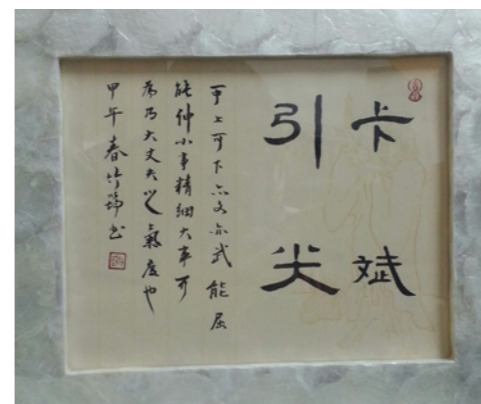 卡斌
引尖
可上可下亦文亦武能屈
能伸小事精细大事可
为乃大丈夫之气度也
甲午春竹
书